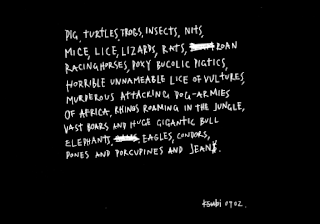 PIG, TURTLES, FROGS, INSECTS, NITS,
MICE, LICE, LIZARDS, RATS, ROAN
RACING HORSES, POXY BUCOLIC PIGTICS,
HORRIBLE UNNAMEABLE LICE OF VULTURES
MURDEROUS ATTACKING DOG-ARMIES
OF AFRICA, RHINOS ROAMING IN THE JUNGLE,
VAST BOARS AND HUGE GIGANTIC BULL
ELEPHANTS, EAGLES, CONDORS,
PONES AND PORCUPINES AND JEANS.
Ksubi 0702.